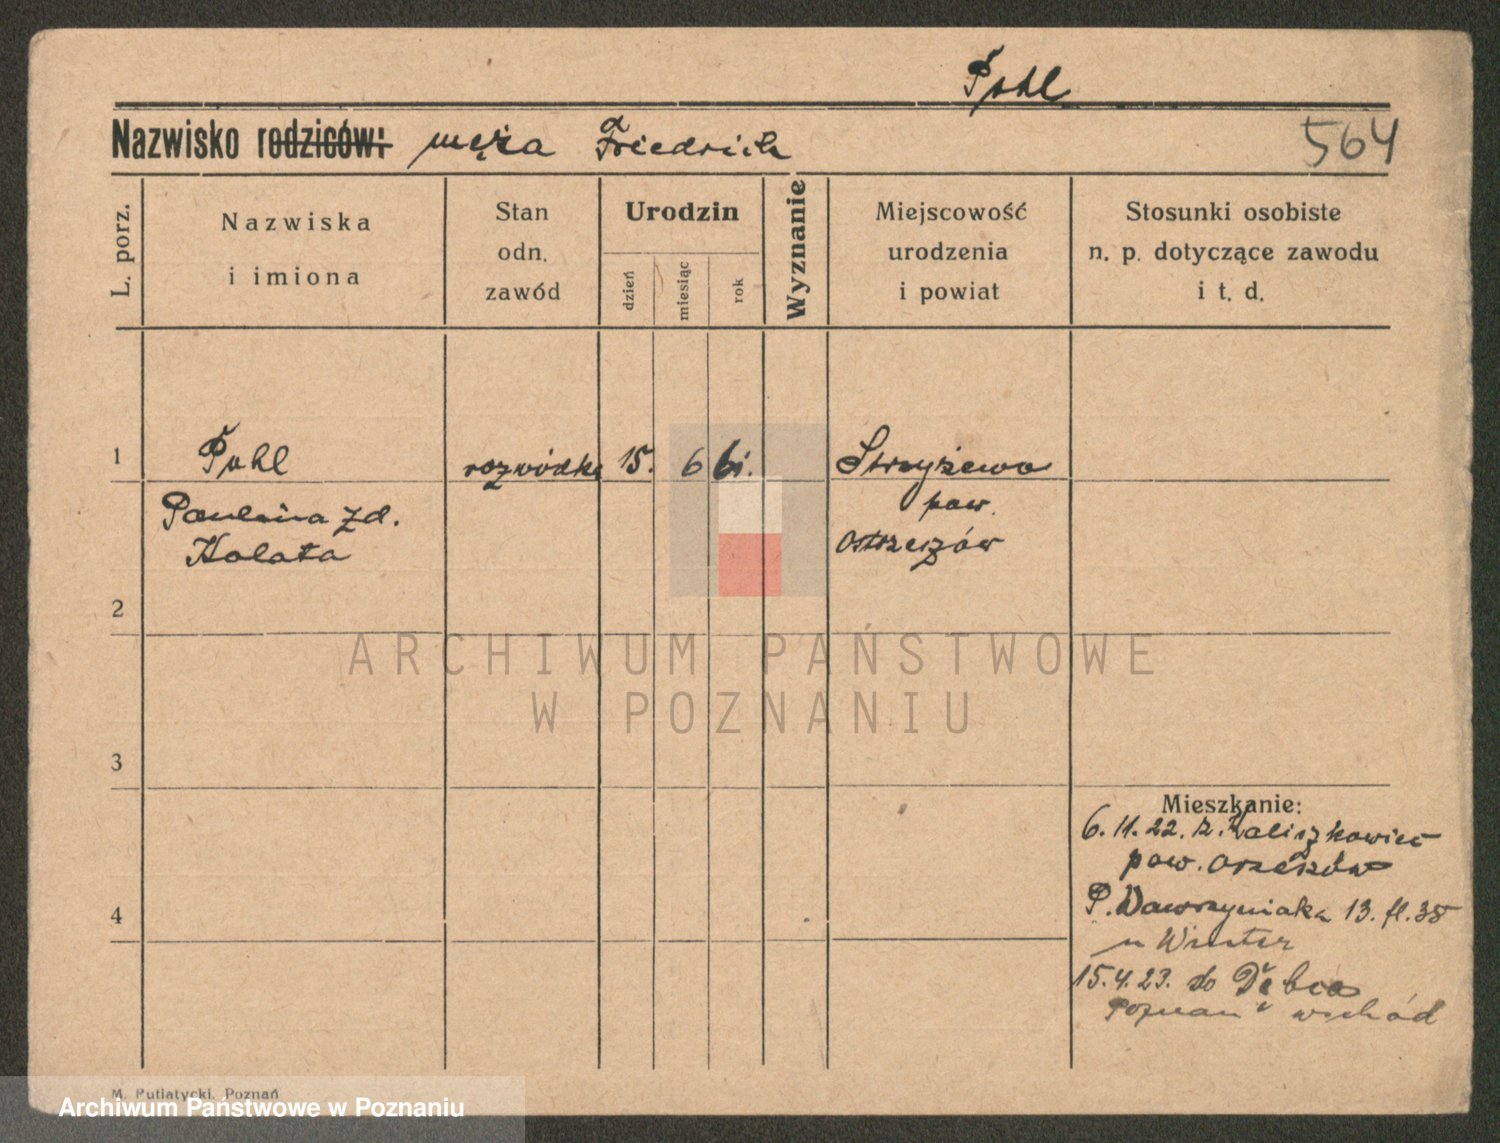 Pohl
Nazwisko rodziców: męża Friedrich 564
L. porz.
Nazwiska
i imiona
Stan
odn.
zawód
Urodzin
dzień
miesiąc
rok
Wyznanie
Miejscowość
urodzenia
i powiat
Stosunki osobiste
n. p. dotyczące zawodu
i t. d.
1 Pohl rozwódka 15. 6 61. Strzyżewo
Paulina zd. pow.
Kolata Ostrzeszów
2
ARCHIWUM PAŃSTWOWE
W POZNANIU
3
Mieszkanie:
6. 11. 22. z. Kaliszkowice
pow.
4
P. Wawrzyniaka 13. 38
u
15. 4. 23. do Dębca
Poznań wschód
M. Putiatycki, Poznań
Archiwum Państwowe w Poznaniu